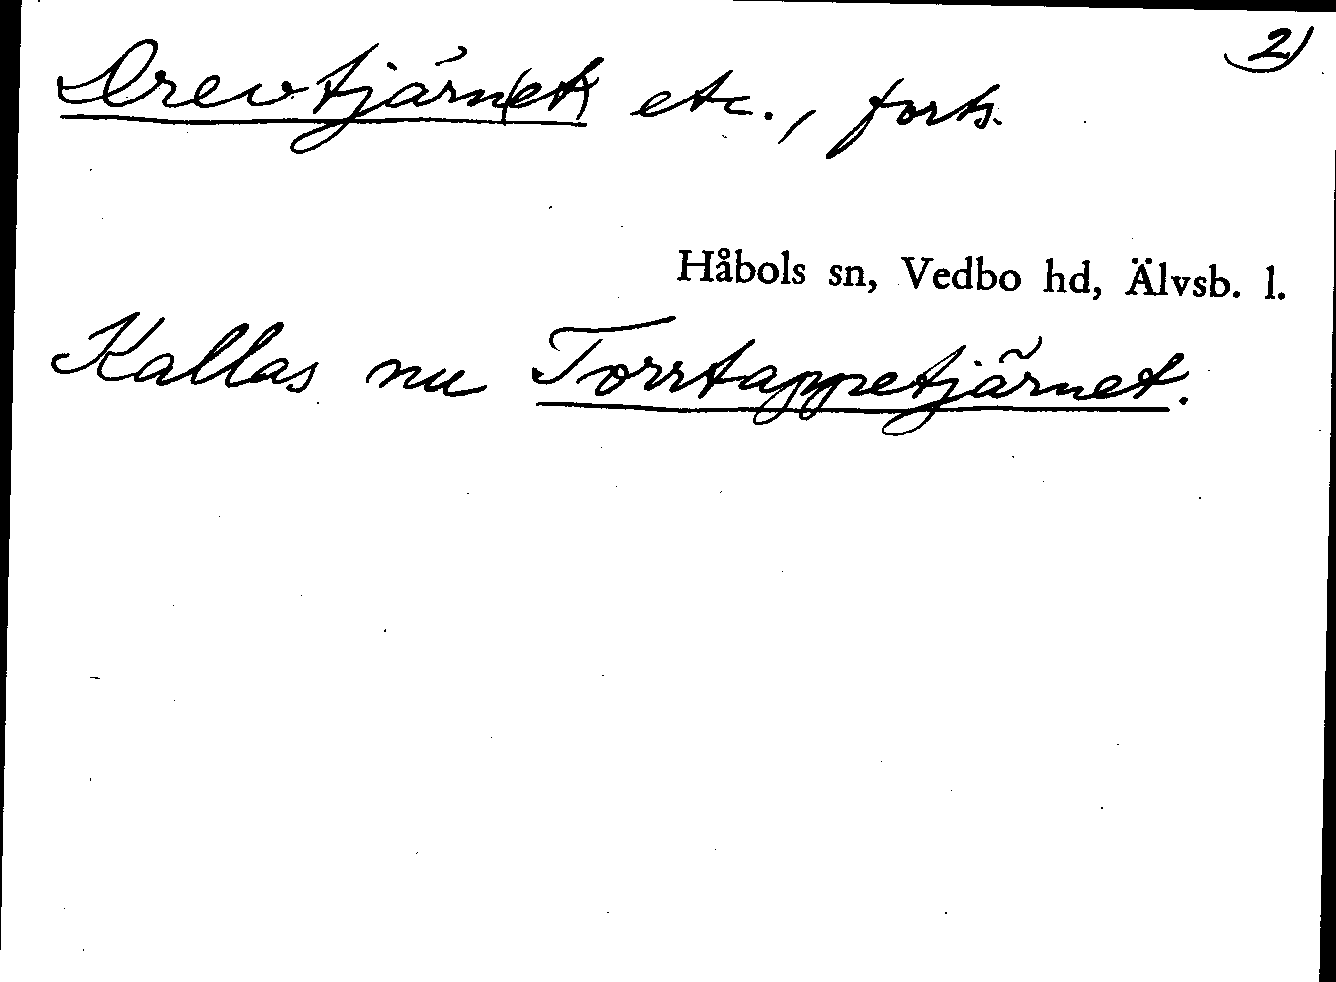 2)
Drevtjärn(et) etc., forts.
Håbols sn, Vedbo hd, Älvsb. l.
Kallas nu Torrtappetjärnet.